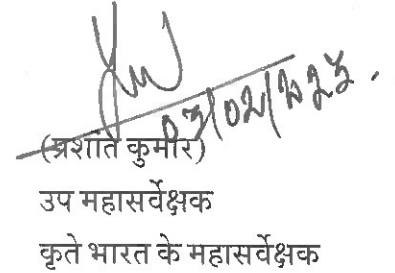 03/02/2023.
(प्रशांत कुमार)
उप महासर्वेक्षक
कृते भारत के महासर्वेक्षक